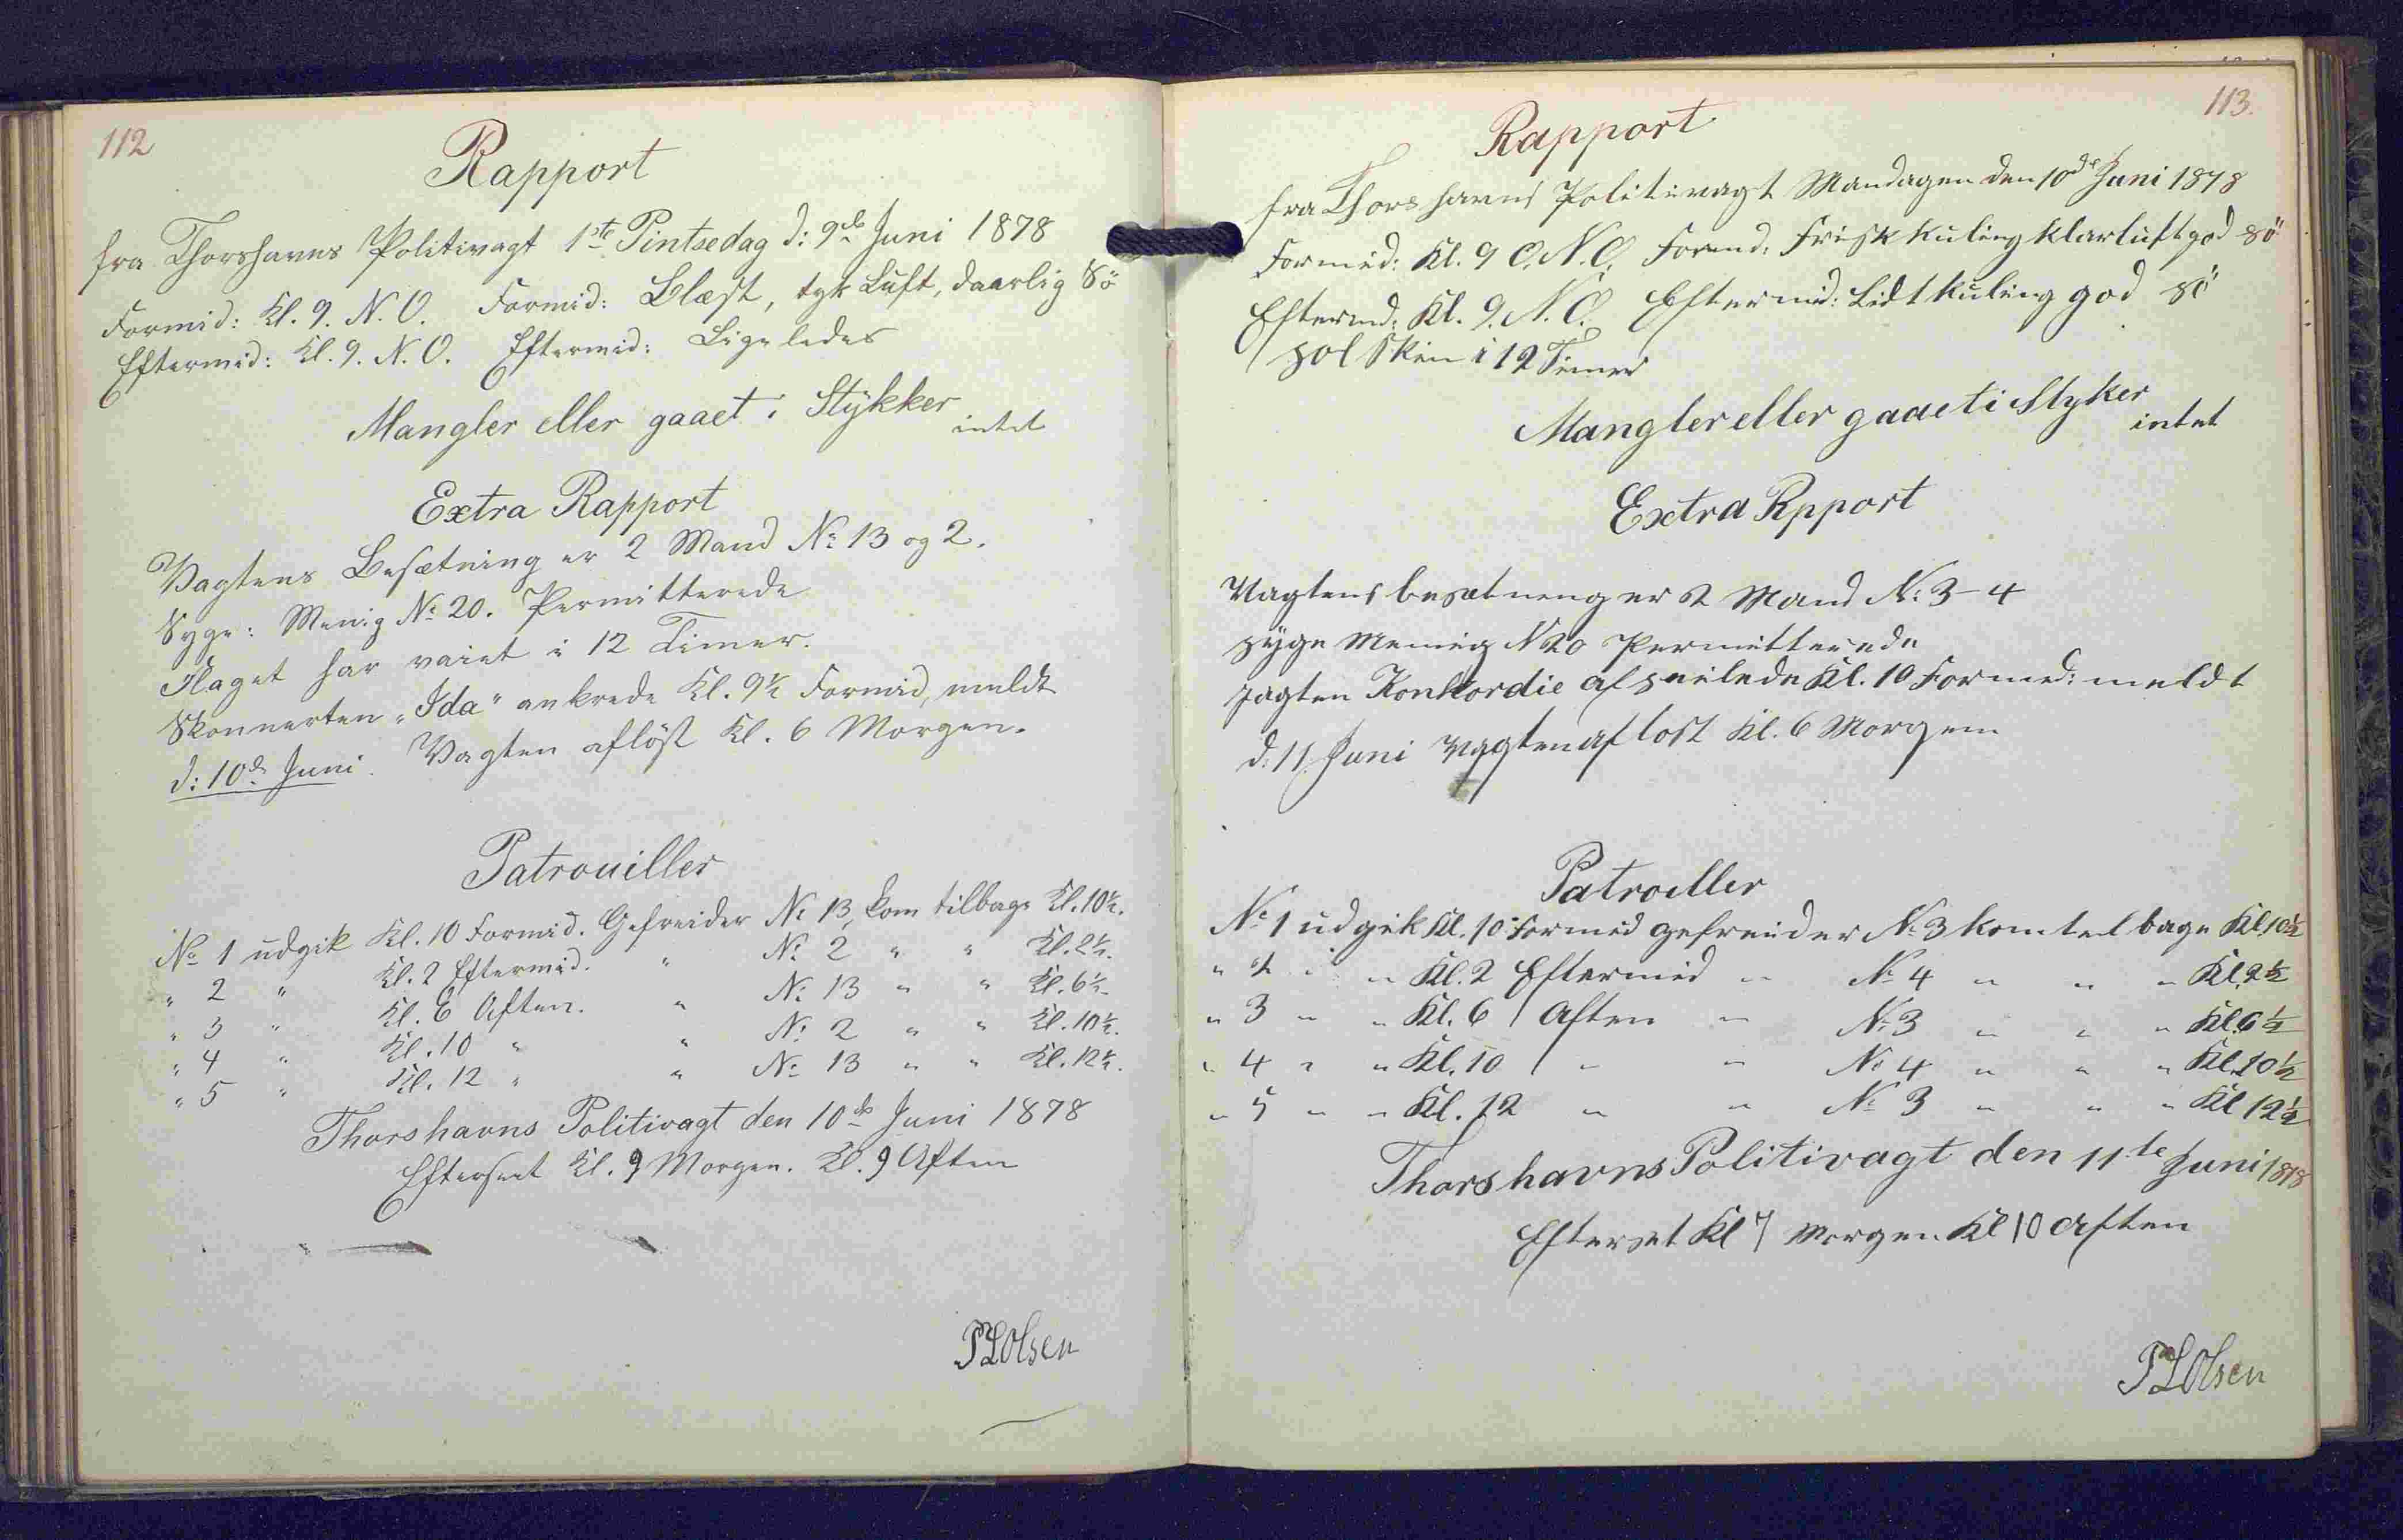 112
Rapport
fra Thorshavns Politivagt 1ste Pintsedag d: 9de Juni 1878
Formid: Kl. 9. N. O. Formid: Blæst, tyk Luft, daarlig Sö
Eftermid: Kl. 9. N. O. Eftermid: Ligeledes
Mangler eller gaaet i Stykker
intet
Extra Rapport
Vagtens Besætning er 2 Mand No 13 og 2.
Syge: Menig No 20. Permitterede
Flaget har vaiet i 12 Timer.
Skonnerten "Ida" ankrede Kl. 9½ Formid, meldt
d: 10de Juni. Vagten aflöst Kl. 6 Morgen.
Patrouiller
No 1 udgik Kl. 10 Formid. Gefreider No 13, kom tilbage Kl. 10½.
" 2 " Kl. 2 Eftermid. " No 2 " " Kl. 2½.
" 3 " Kl. 6 Aften. " No 13 " " Kl. 6½.
" 4 " Kl. 10 " " No 2 " " Kl. 10½.
" 5 " Kl. 12 " " No 13 " " Kl. 12½.
Thorshavns Politivagt den 10de Juni 1878
Efterseet Kl. 9 Morgen. Kl. 9 Aften
P L Olsen
113.
Rapport
fra Thorshavns Politivagt Mandagen den 10de Juni 1878
Formid: Kl. 9 O. N. O. Formd: Frisk Kuling klarluft god sö
Eftermd: Kl. 9. N. O. Eftermid: Lidt kuling god sö
sol Skin i 12 Timer
Mangler eller gaaet i Styker
intet
Extra Rpport
Vagtens besætning er 2 Mand No 3 - 4
syge Menig N 20 Permitterede
Jagten Konkordie afseilede Kl. 10 Formd: meldt
d. 11 Juni Vagten aflost Kl. 6 Morgen
Patroiller
No 1 udgik Kl. 10 Formid gefreider No 3 kom tel bage Kl 10½
" 2 " " Kl. 2 Eftermid " No 4 " " " Kl. 2½
" 3 " " Kl. 6 Aften " No 3 " " " Kl. 6½
" 4 " " Kl. 10 " " No 4 " " " Kl. 10½
" 5 " " Kl. 12 " " No 3 " " " Kl 12½
Thorshavns Politivagt den 11te Juni 1878
Efterset Kl 7 Morgen Kl 10 Aften
P L Olsen